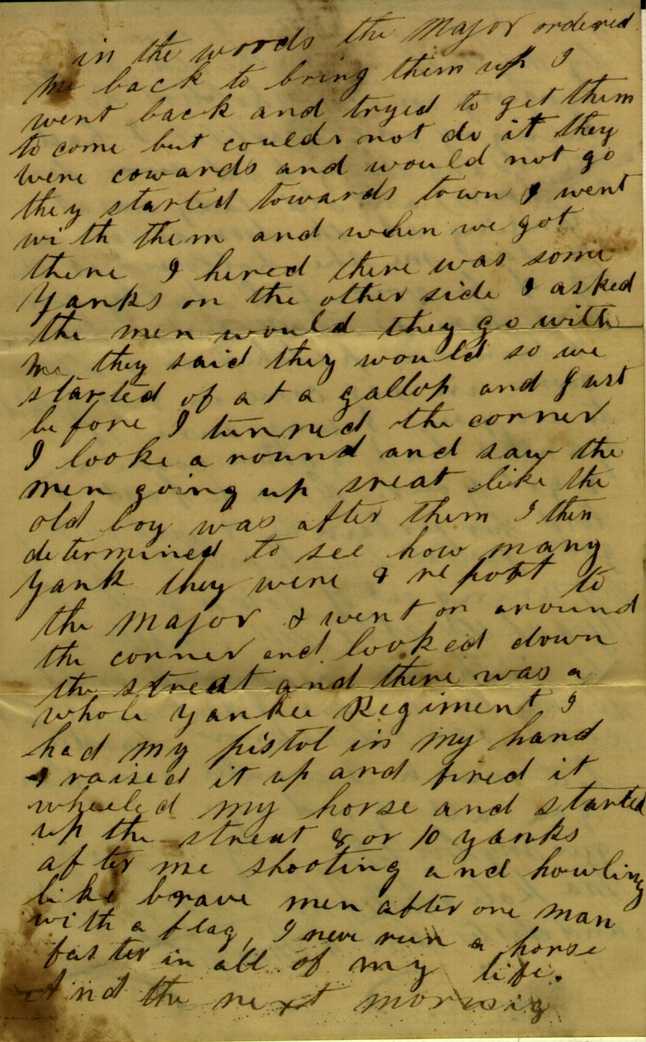 in the woods the Major ordered
me back to bring them up I
went back and tryed to get them
to come but could not do it they
were cowards and would not go
they started towards town I went
with them and when we got
there I hered there was some
Yanks on the other side I asked
the men would they go with
me they said they would so we
started of at a gallop and Just
before I turned the corner
I looke a round and saw the
men going up sreat like the
old boy was after them I then
determined to see how many
Yank they were & report to
the Major & went on around
the corner and looked down
the streat and there was a
whole Yankee Regiment, I
had my pistol in my hand
I raised it up and fired it
wheeled my horse and started
up the streat 8 or 10 yanks
after me shooting and howling
like brave men after one man
with a flag, I neve run a horse
faster in all of my life.
And the next morning